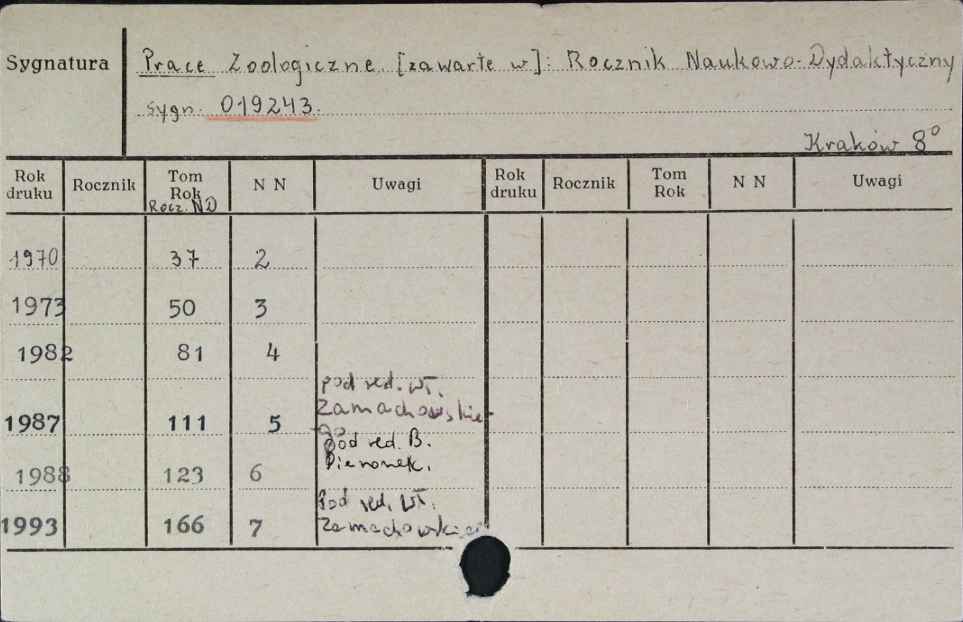 Sygnatura Prace Zoologiczne [zawarte w]: Rocznik Naukowo-Dydaktyczny
sygn. 019243.
Kraków 8°
Rok druku Rocznik Tom Rok Rocz. ND N N Uwagi Rok druku Rocznik Tom Rok N N Uwagi
1970 37 2
1973 50 3
1982 81 4
1987 111 5 pod red. Wł. Zamachowskiego
1988 123 6 pod red. B. Pieronek.
1993 166 7 Pod red. Wł. Zamachowskiego